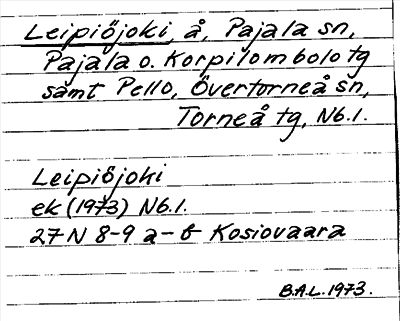 Leipiöjoki, å, Pajala sn,
Pajala o. Korpilombolo tg
samt Pello, Övertorneå sn,
Torneå tg, Nb.l.
Leipiöjoki
ek (1973) Nb.l.
27 N 8-9 a-b Kosiovaara
B.A.L. 1973.